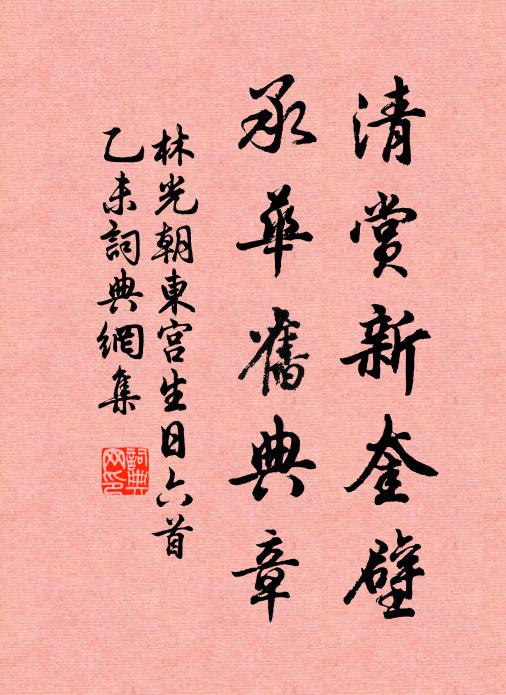 清賞新奎壁
承華舊典章
林光朝東宮生日六首
乙未詞典網集
詞典网印